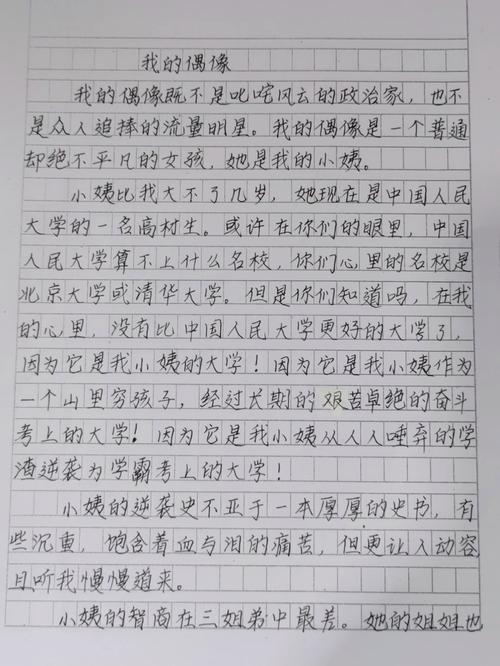 我的偶像
我的偶像既不是叱咤风云的政治家，也不
是众人追捧的流量明星。我的偶像是一个普通
却绝不平凡的女孩，她是我的小姨。
小姨比我大不了几岁，她现在是中国人民
大学的一名高材生。或许在你们的眼里，中国
人民大学算不上什么名校，你们心里的名校是
北京大学或清华大学。但是你们知道吗，在我
的心里，没有比中国人民大学更好的大学了，
因为它是我小姨的大学！因为它是我小姨作为
一个山里穷孩子，经过长期的艰苦卓绝的奋斗
考上的大学！因为它是我小姨从人人唾弃的学
渣逆袭为学霸考上的大学！
小姨的逆袭史不亚于一本厚厚的史书，有
些沉重，饱含着血与泪的痛苦，但更让人动容
且听我慢慢道来。
小姨的智商在三姐弟中最差。她的姐姐也